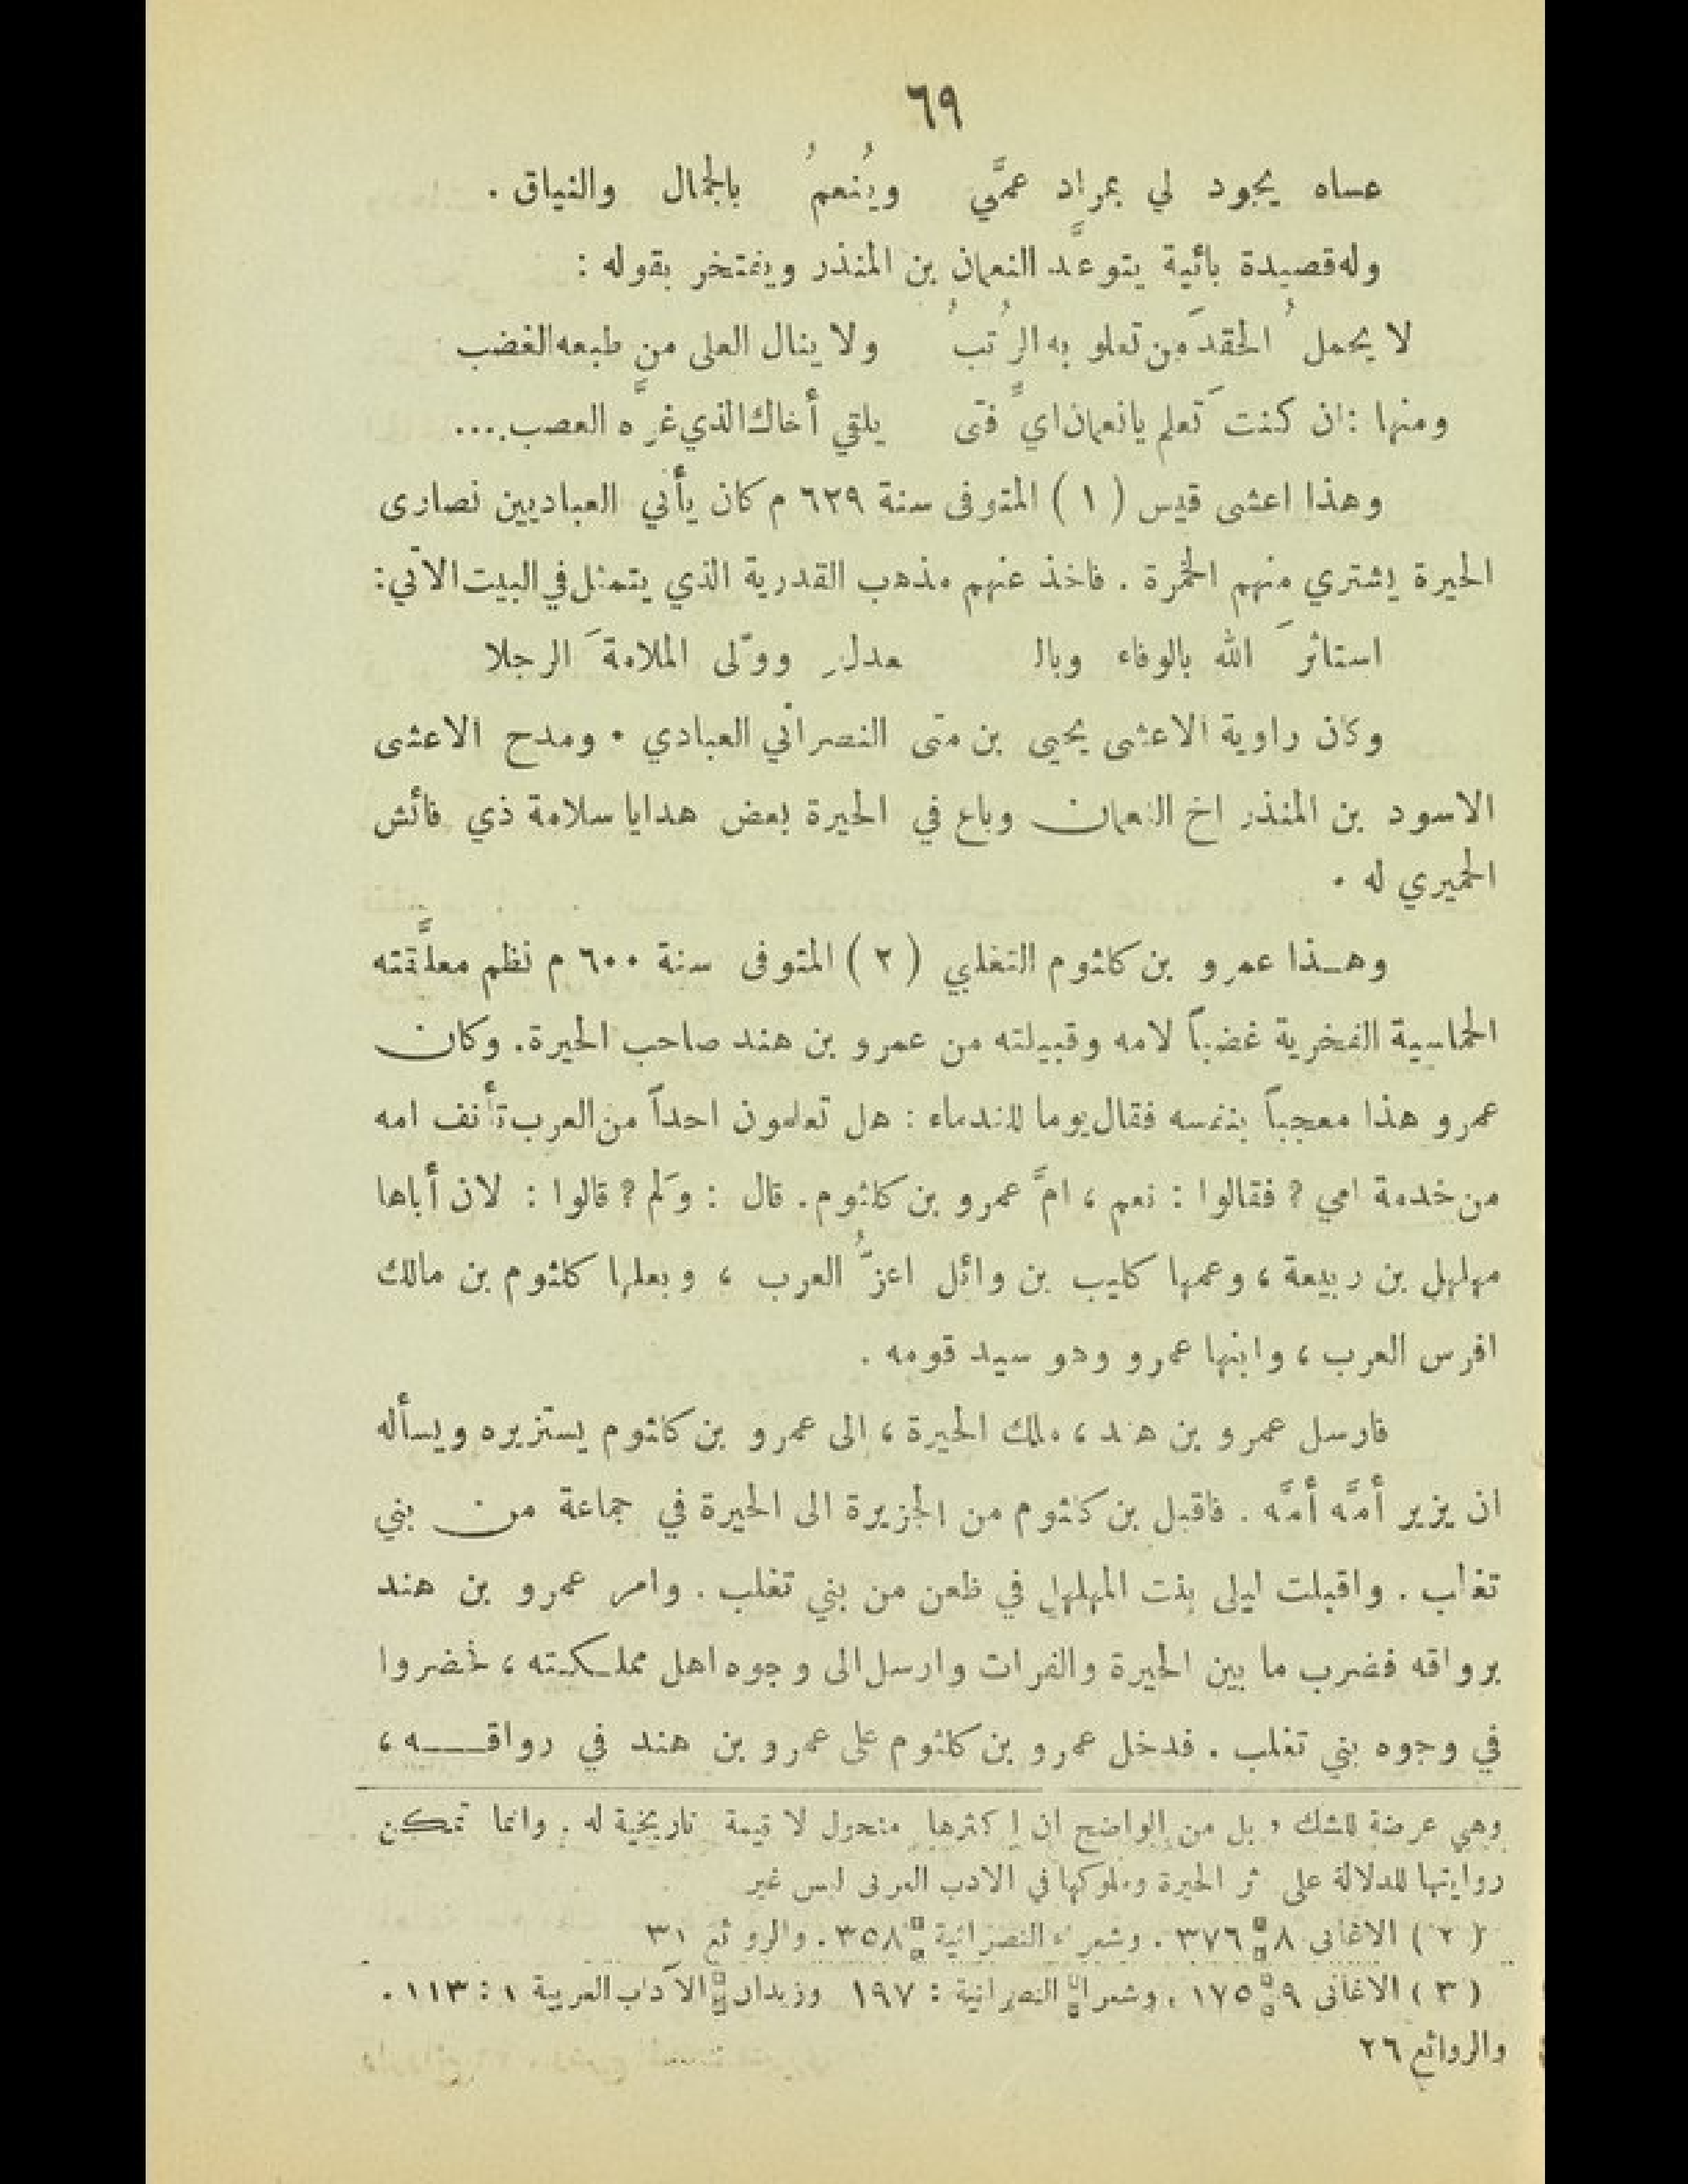 ٦٩
عساه يجود لي بمرادِ عمَّي ويُنعمُ بالجمال والنياق .
وله قصيدة بائية يتوعَّد النعمان بن المنذر ويفتخر بقوله :
لا يحملُ الحقدَ مَن تعلو به الرُتبُ ولا ينال العلى من طبعه الغضب
ومنها : ان كنتَ تعلم يا نعمان ايَّ فتى يلقي أخاك الذي غرَّه العصب ...
وهذا اعشى قيس ( ١ ) المتوفى سنة ٦٢٩ م كان يأتي العباديين نصارى
الحيرة يشتري منهم الخمرة . فاخذ عنهم مذهب القدرية الذي يتمثل في البيت الآتي :
استاثرَ الله بالوفاء وبالـ ـعدلِ وولّى الملامةَ الرجلا
وكان راوية الاعشى يحيى بن متى النصراني العبادي . ومدح الاعشى
الاسود بن المنذر اخ النعمان وباع في الحيرة بعض هدايا سلامة ذي فائش
الحميري له .
وهـذا عمرو بن كلثوم التغلبي ( ٢ ) المتوفى سنة ٦٠٠ م نظم معلَّقته
الحماسية الفخرية غضباً لامه وقبيلته من عمرو بن هند صاحب الحيرة. وكان
عمرو هذا معجباً بنفسه فقال يوما للندماء : هل تعلمون احداً من العرب تأنف امه
من خدمة امي ؟ فقالوا : نعم ، امَّ عمرو بن كلثوم. قال : وَلم ؟ قالوا : لان أباها
مهلهل بن ربيعة ، وعمها كليب بن وائل اعزُّ العرب ، وبعلها كلثوم بن مالك
افرس العرب ، وابنها عمرو وهو سيد قومه .
فارسل عمرو بن هند ، ملك الحيرة ، الى عمرو بن كلثوم يستزيره ويسأله
ان يزير أمَّه أمَّه . فاقبل بن كلثوم من الجزيرة الى الحيرة في جماعة من بني
تغلب . واقبلت ليلى بنت المهلهل في ظعن من بني تغلب . وامر عمرو بن هند
برواقه فضرب ما بين الحيرة والفرات وارسل الى وجوه اهل مملـكـته ، فحضروا
في وجوه بني تغلب . فدخل عمرو بن كلثوم على عمرو بن هند في رواقــه ،
وهي عرضة للشك ، بل من الواضح ان اكثرها منحول لا قيمة تاريخية له . وانما تمكن
روايتها للدلالة على ثر الحيرة وملوكها في الادب العربى ليس غير
( ٢ ) الاغانى ٨ : ٣٧٦ . وشعراء النصرانية : ٣٥٨ . والروئع ٣١
( ٣ ) الاغانى ٩ : ١٧٥ . وشعراء النصرانية : ١٩٧ وزيدان : الآداب العربية ١ : ١١٣ .
والروائع ٢٦